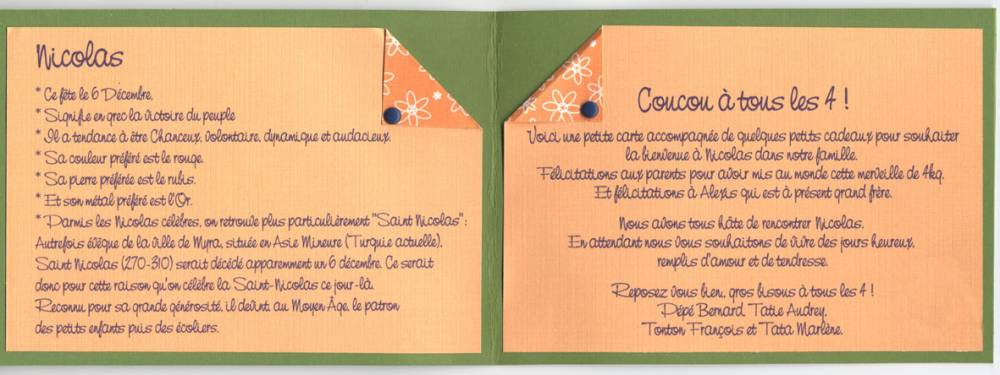 Nicolas
* Ce fête le 6 Décembre.
* Signifie en grec la victoire du peuple
* Il a tendance à être Chanceux, volontaire, dynamique et audacieux.
* Sa couleur préféré est le rouge.
* Sa pierre préférée est le rubis.
* Et son métal préféré est l'Or.
* Parmis les Nicolas célèbres, on retrouve plus particulièrement "Saint Nicolas" :
Autrefois évêque de la ville de Myra, située en Asie Mineure (Turquie actuelle),
Saint Nicolas (270-310) serait décédé apparemment un 6 décembre. Ce serait
donc pour cette raison qu'on célèbre la Saint-Nicolas ce jour-là.
Reconnu pour sa grande générosité, il devint au Moyen Âge, le patron
des petits enfants puis des écoliers.
Coucou à tous les 4 !
Voici une petite carte accompagnée de quelques petits cadeaux pour souhaiter
la bienvenue à Nicolas dans notre famille.
Félicitations aux parents pour avoir mis au monde cette merveille de 4kg.
Et félicitations à Alexis qui est à présent grand frère.
Nous avons tous hâte de rencontrer Nicolas.
En attendant nous vous souhaitons de vivre des jours heureux,
remplis d'amour et de tendresse.
Reposez vous bien, gros bisous à tous les 4 !
Pépé Bernard, Tatie Audrey,
Tonton François et Tata Marlène.